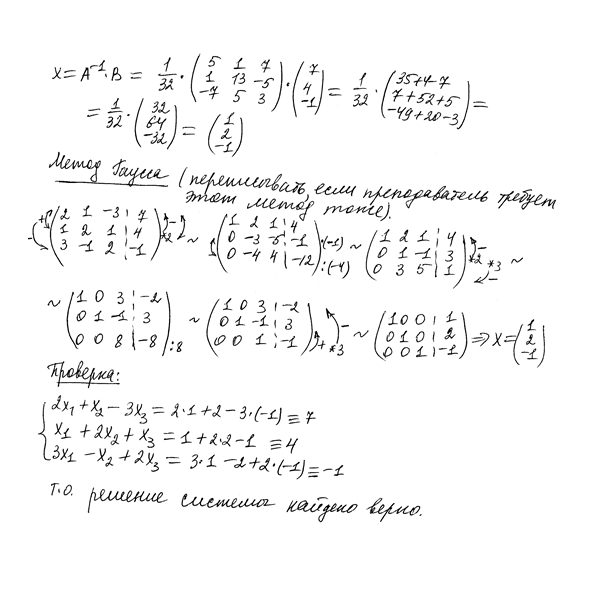 X = A⁻¹·B = 1/32 · (5 1 7; 1 13 -5; -7 5 3) · (7; 4; -1) = 1/32 · (35+4-7; 7+52+5; -49+20-3) =
= 1/32 · (32; 64; -32) = (1; 2; -1)
Метод Гаусса (переписывать, если преподаватель требует
этот метод тоже).
(2 1 -3 | 7; 1 2 1 | 4; 3 -1 2 | -1) *2 ~ (1 2 1 | 4; 0 -3 -5 | -1; 0 -4 4 | -12) ·(-1) :(-4) ~ (1 2 1 | 4; 0 1 -1 | 3; 0 3 5 | 1) *2 *3 ~
~ (1 0 3 | -2; 0 1 -1 | 3; 0 0 8 | -8) :8 ~ (1 0 3 | -2; 0 1 -1 | 3; 0 0 1 | -1) + *3 ~ (1 0 0 | 1; 0 1 0 | 2; 0 0 1 | -1) ⇒ X = (1; 2; -1)
Проверка:
2x₁ + x₂ - 3x₃ = 2·1 + 2 - 3·(-1) ≡ 7
x₁ + 2x₂ + x₃ = 1 + 2·2 - 1 ≡ 4
3x₁ - x₂ + 2x₃ = 3·1 - 2 + 2·(-1) ≡ -1
Т.О. решение системы найдено верно.